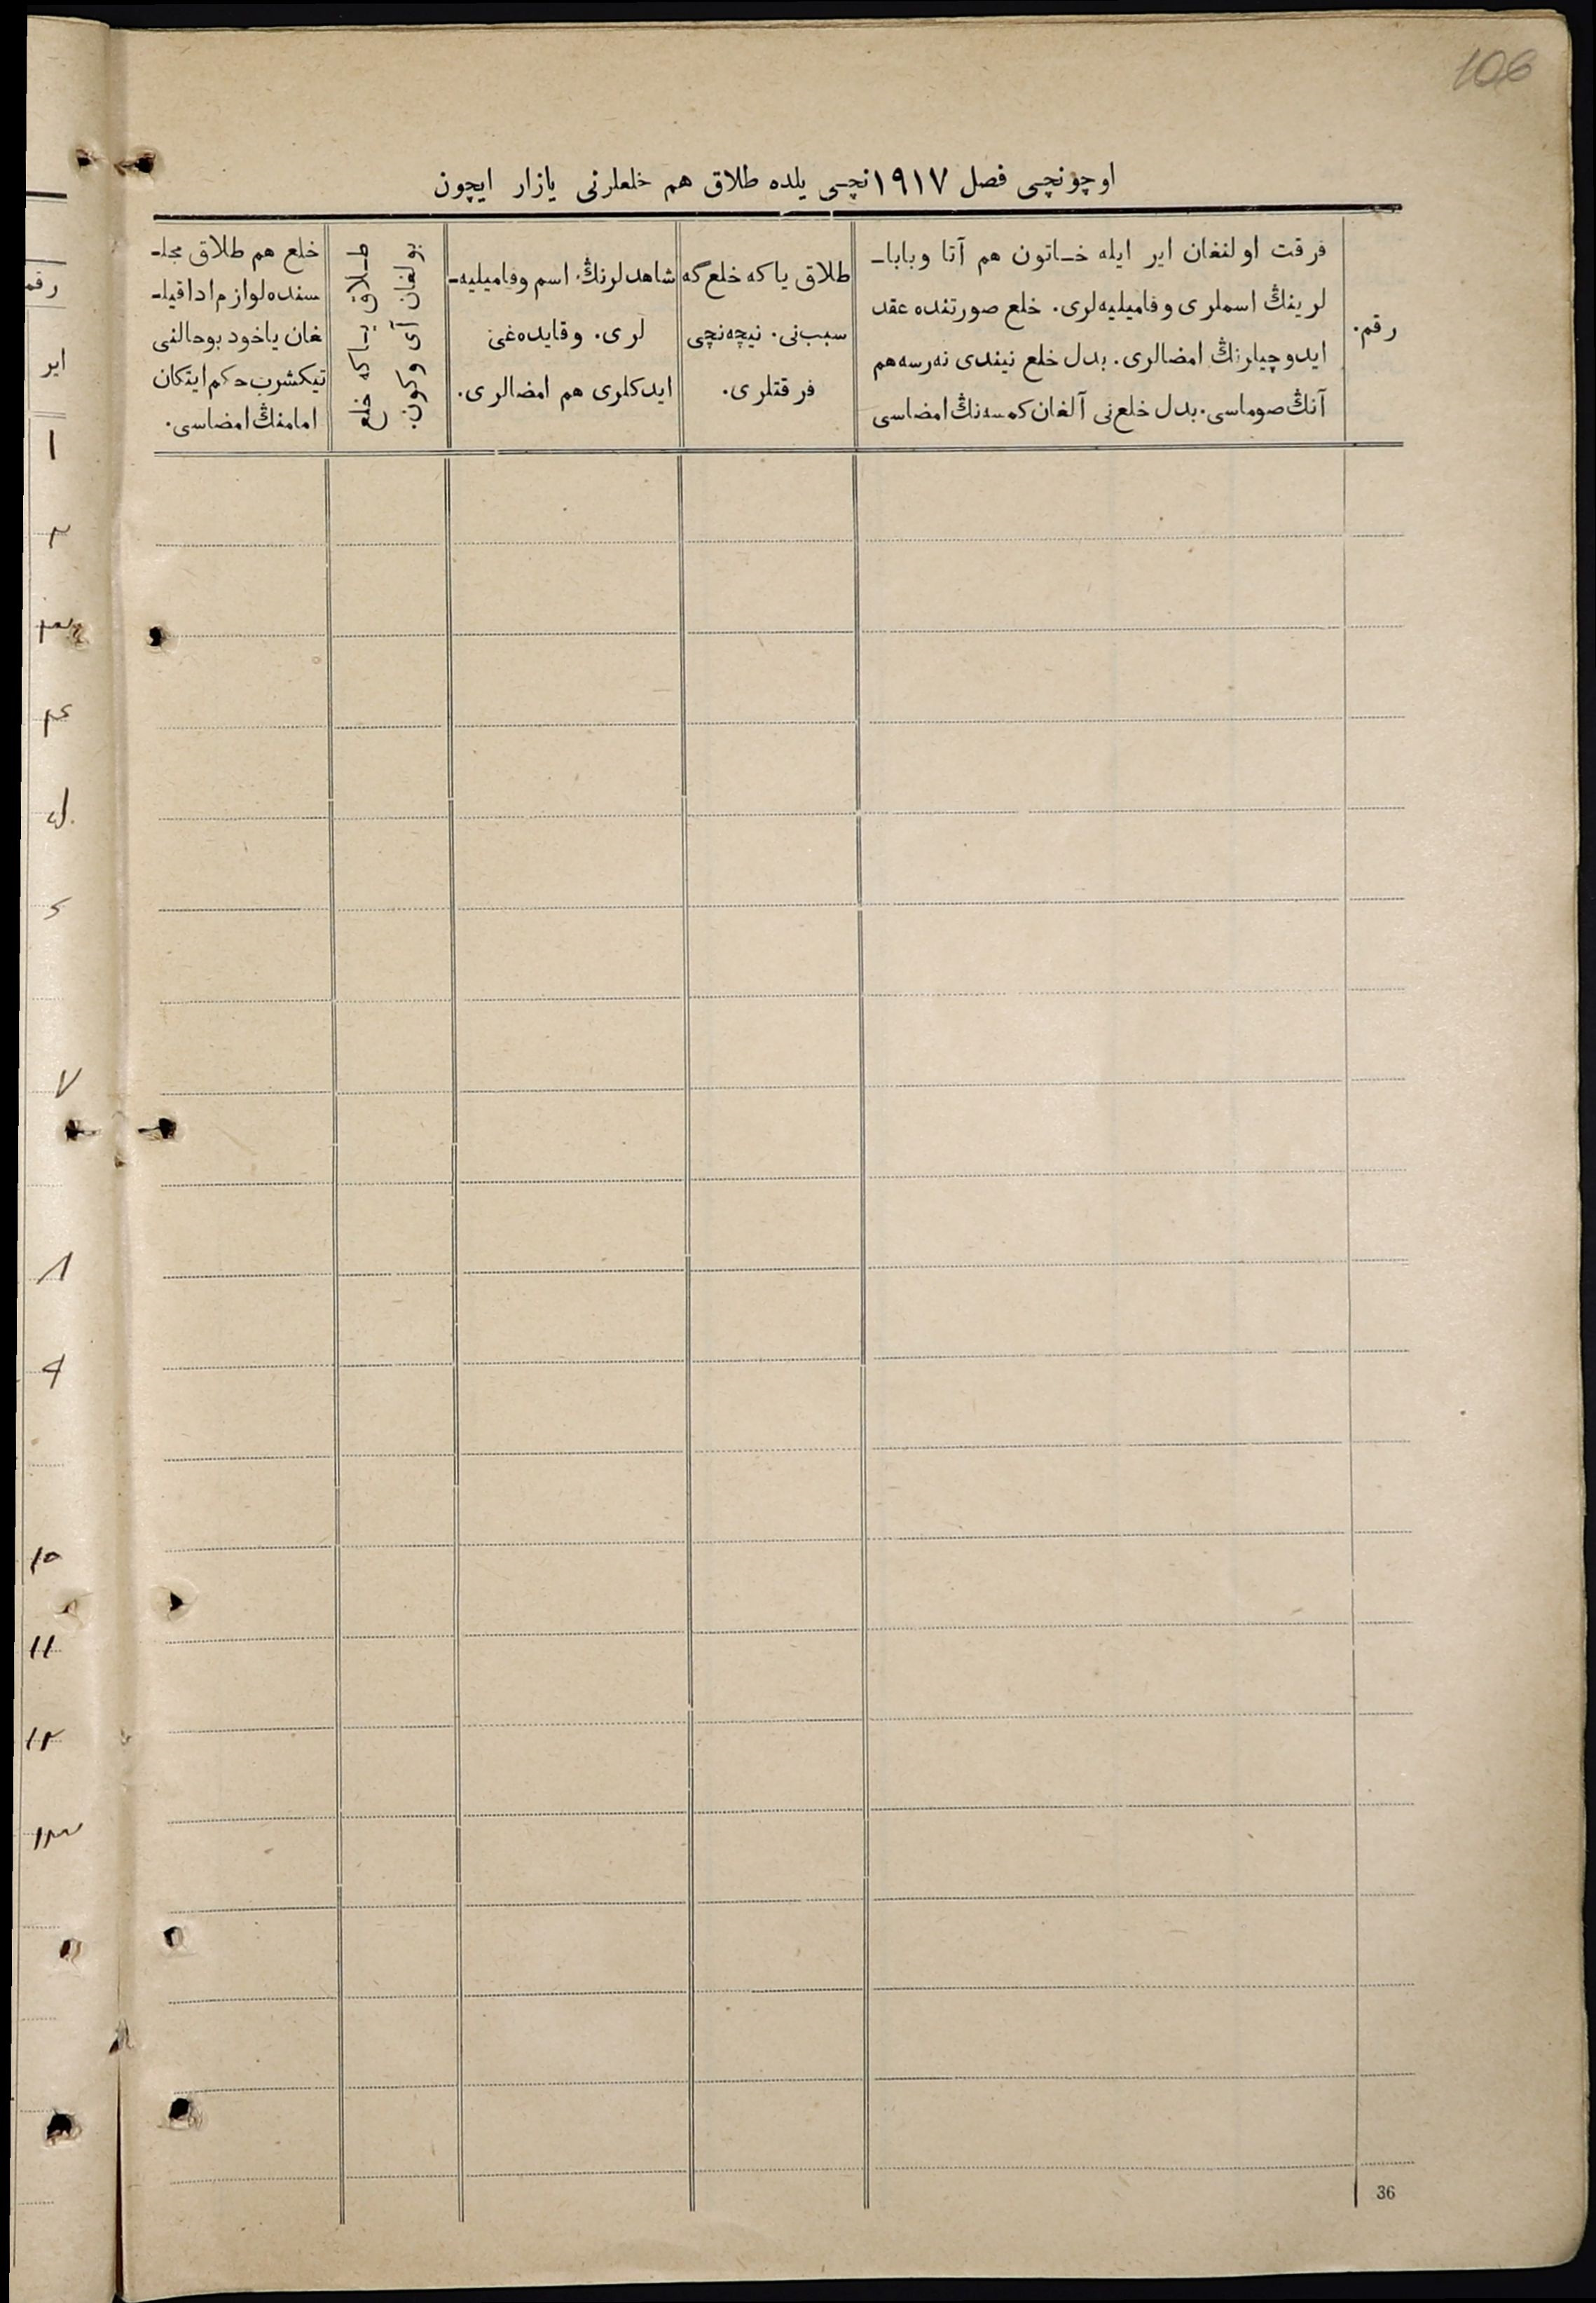 106
اوچونچی فصل ١٩١٧نچی یلده طلاق هم خلعلرنی یازار ایچون
رقم.
فرقت اولنغان ایر ایله خاتون هم آتا وبابا-
لرینڭ اسملری وفامیلیه‌لری. خلع صورتنده عقد
ایدوچیلرنڭ امضالری. بدل خلع نیندی نه‌رسه هم
آنڭ صوماسی. بدل خلع‌نی آلغان کمسه‌نڭ امضاسی
طلاق یا که خلع‌گه
سبب‌نی. نیچه‌نچی
فرقتلری.
شاهدلرنڭ اسم وفامیلیه-
لری. وقایده‌غی
ایدکلری هم امضالری.
طلاق یاکه خلع
بولغان آی وکون.
خلع هم طلاق مجلـ
سنده لوازم ادا قیلـ
غان یاخود بوحالنی
تیکشرب حکم ایتکان
امامنڭ امضاسی.
رقم
ایر
١
٢
٣
٤
٥
٦
٧
٨
٩
١٠
١١
١٢
١٣
36